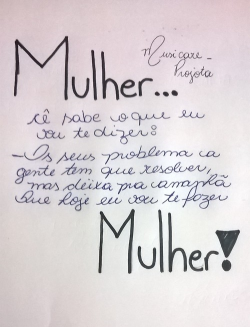 Musicare -
Projota
Mulher...
cê sabe o que eu
vou te dizer:
- Os seus problema a
gente tem que resolver,
mas deixa pra amanhã
que hoje eu vou te fazer
Mulher!